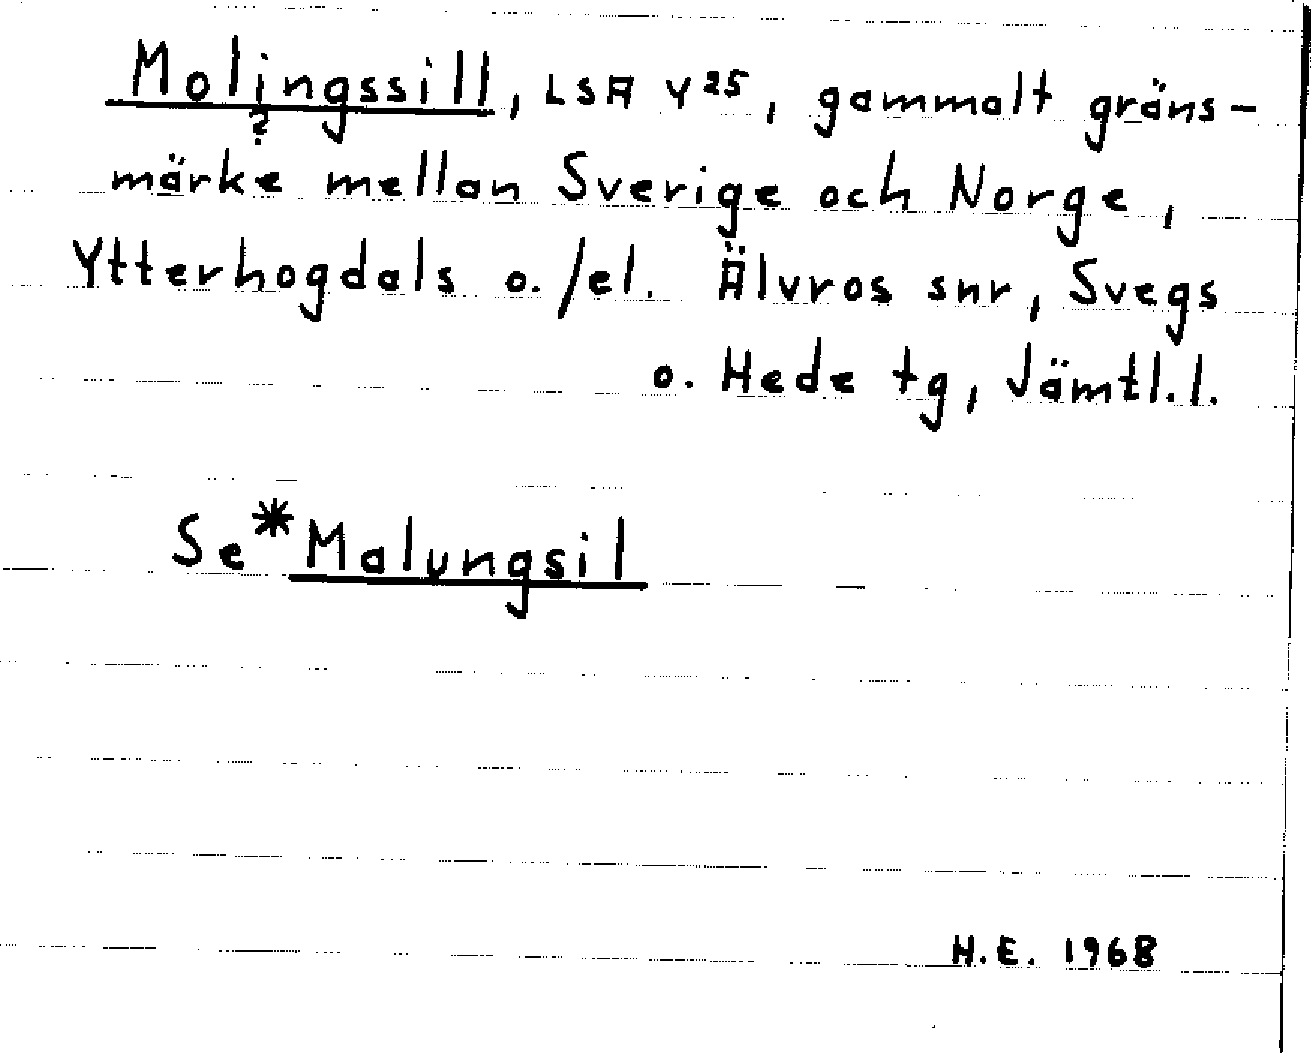 Molingssill, LSA Y25, gammalt gräns-
?
märke mellan Sverige och Norge,
Ytterhogdals o./el. Älvros snr, Svegs
o. Hede tg, Jämtl.l.
Se *Malungsil
H.E. 1968